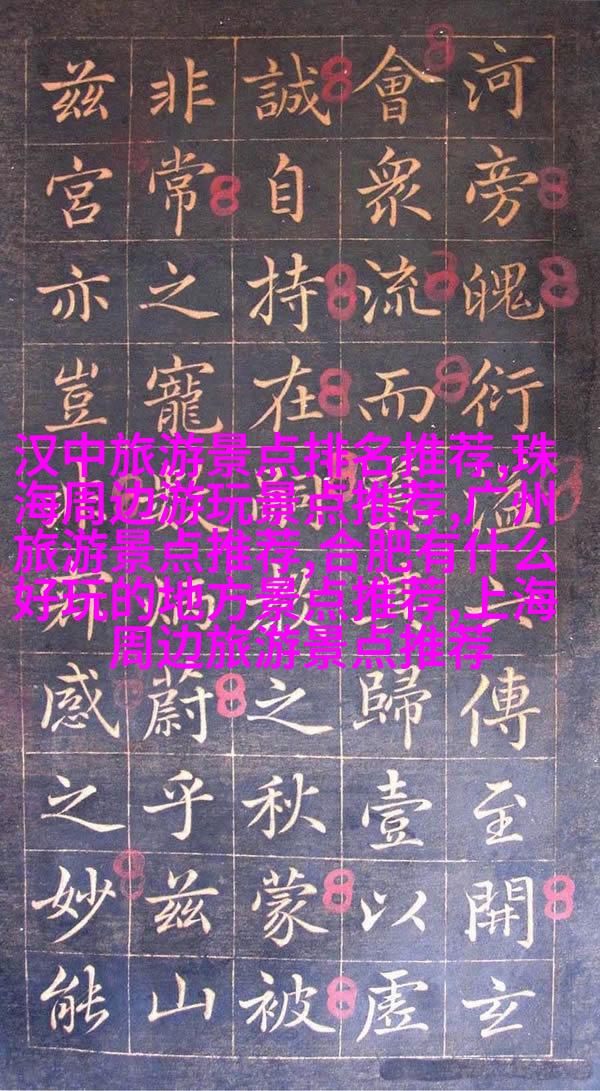 河旁魄衍溢六傳至開玄
會衆流而歸壹以虛
誠自持在之秋蒙被
非常之寵蔚乎茲山
茲宮亦豈感之妙能
汉中旅游景点排名推荐,珠
海周边游玩景点推荐,广州
旅游景点推荐,合肥有什么
好玩的地方景点推荐,上海
周边旅游景点推荐